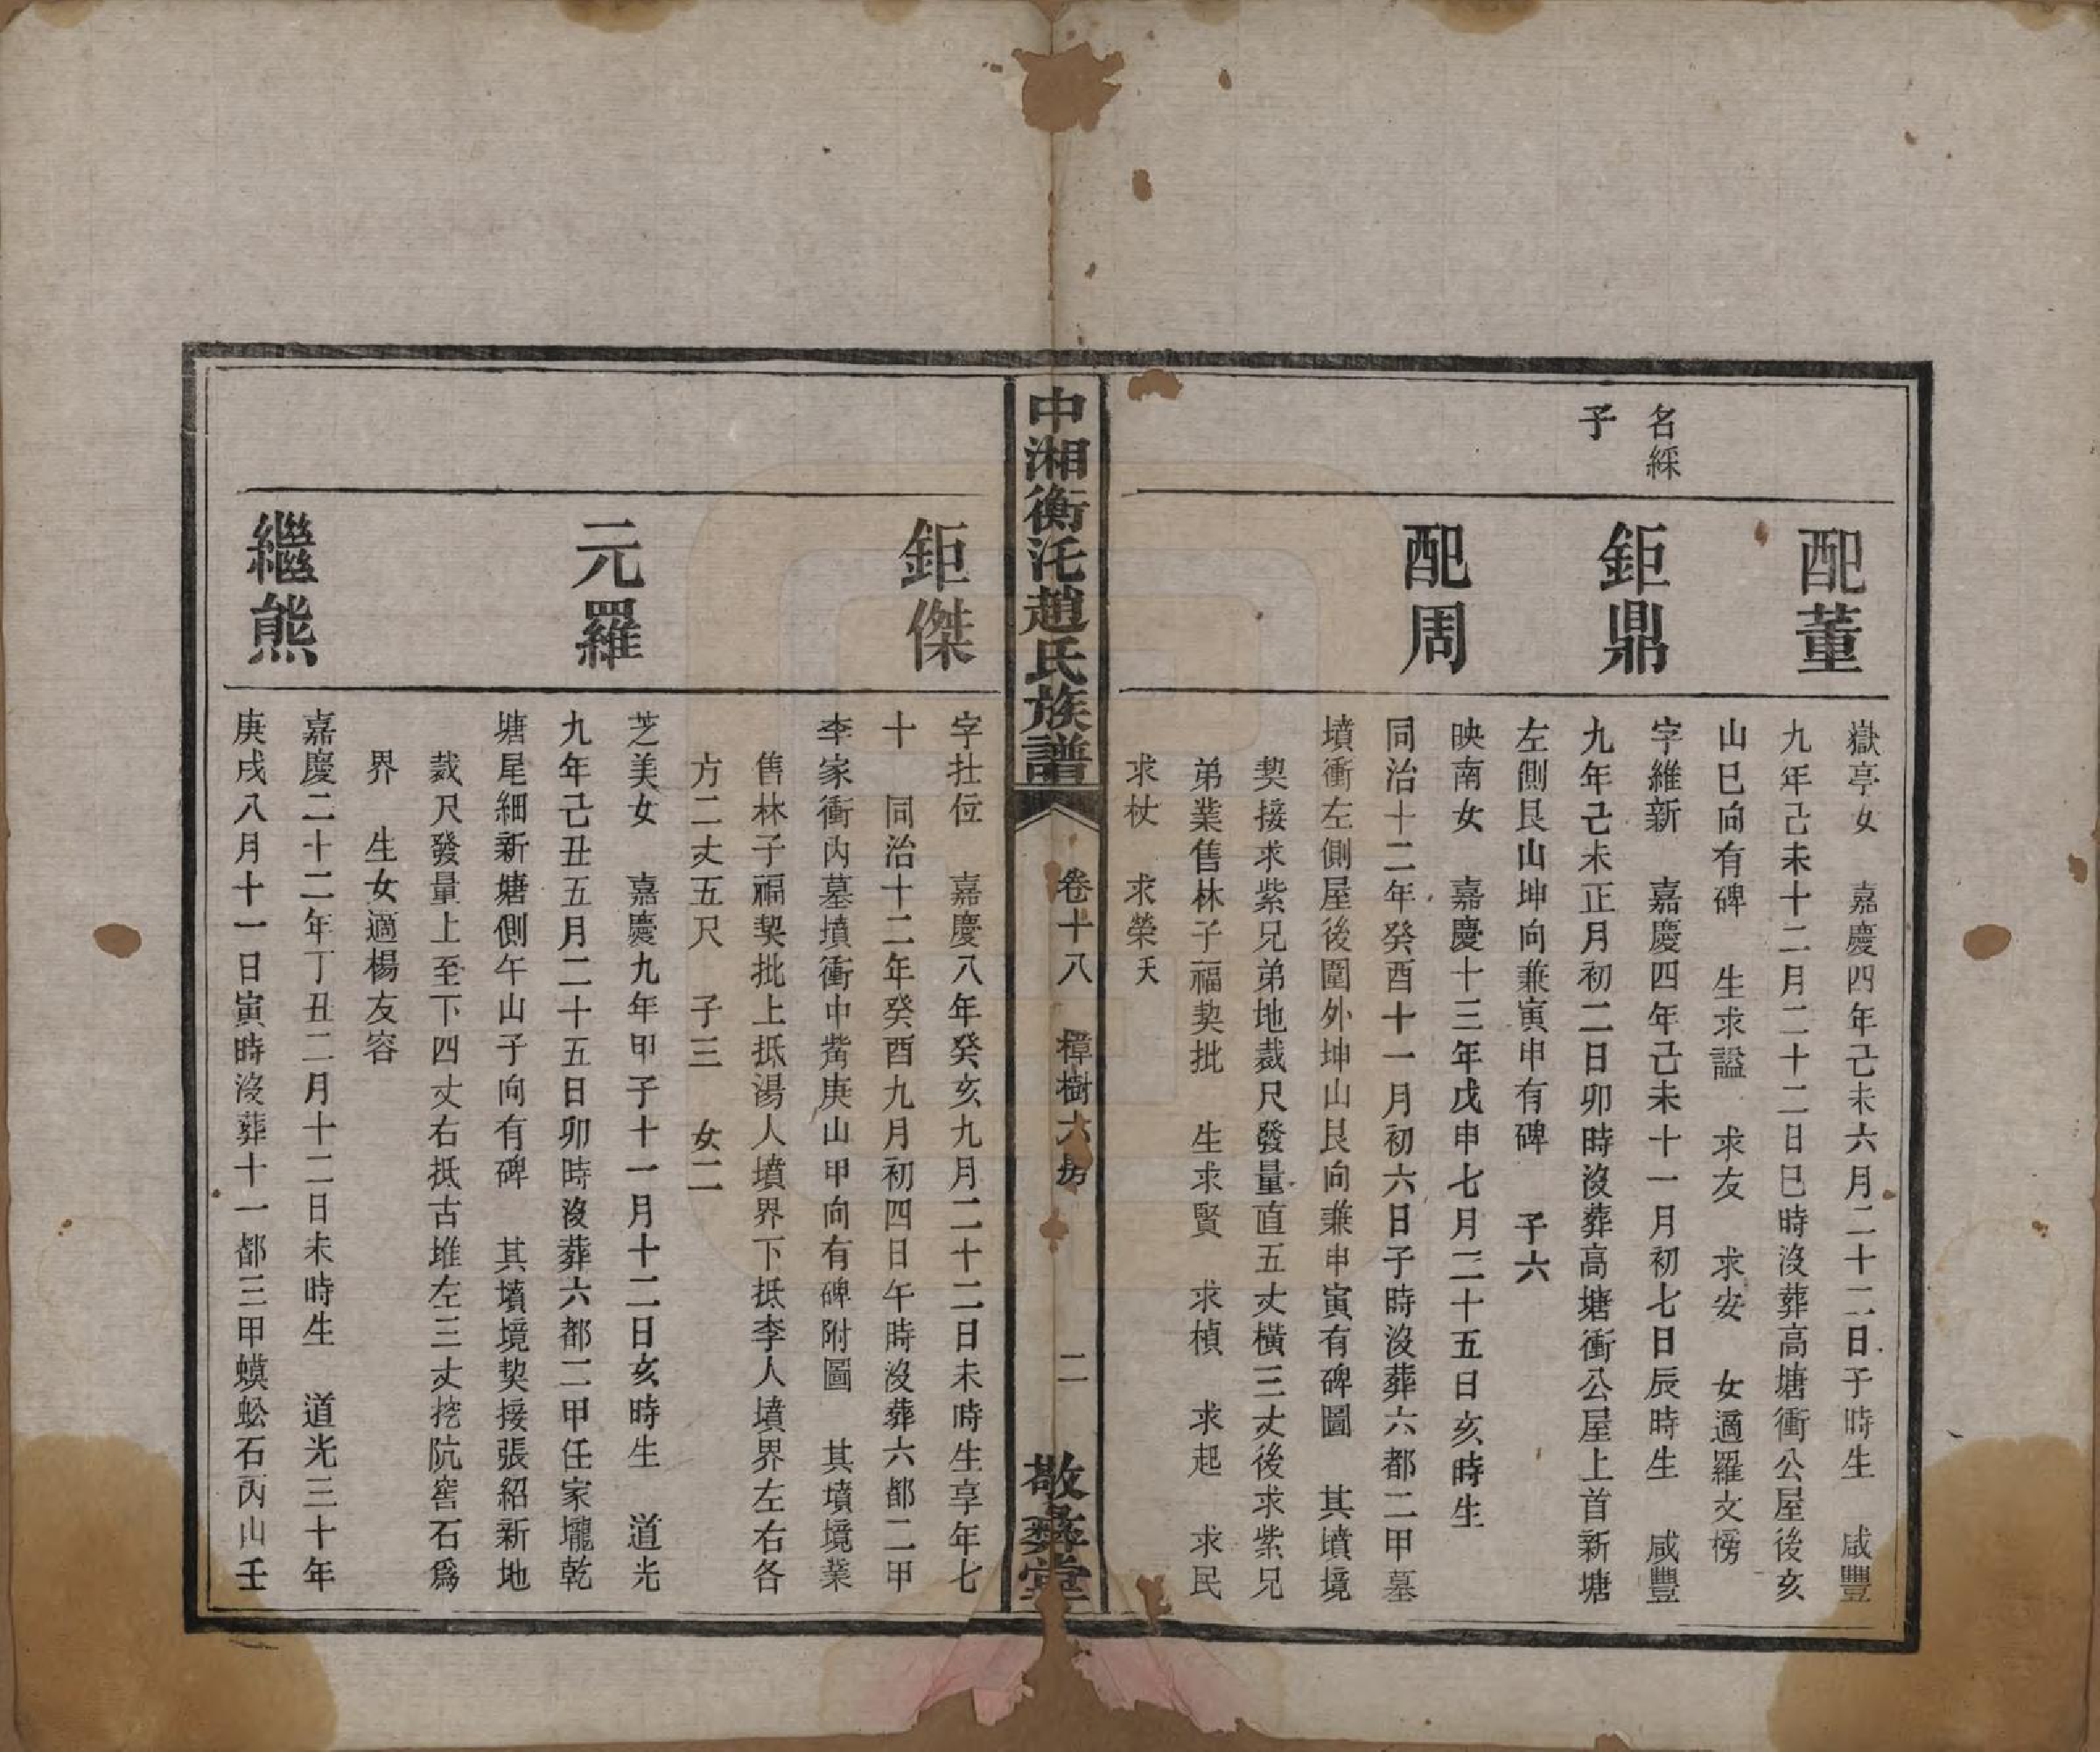 配董
嶽亭女　嘉慶四年己未六月二十二日子時生　咸豐
九年己未十二月二十二日巳時沒葬高塘衝公屋後亥
山巳向有碑　生求謚　求友　求安　女適羅文榜
名綵
子
鉅鼎
字維新　嘉慶四年己未十一月初七日辰時生　咸豐
九年己未正月初二日卯時沒葬高塘衝公屋上首新塘
左側艮山坤向兼寅申有碑　子六
配周
映南女　嘉慶十三年戊申七月二十五日亥時生
同治十二年癸酉十一月初六日子時沒葬六都二甲墓
墳衝左側屋後圍外坤山艮向兼申寅有碑圖　其墳境
契接求紫兄弟地裁尺發量直五丈橫三丈後求紫兄
弟業售林子福契批　生求賢　求楨　求起　求民
求杖　求榮夭
中湘衡汑趙氏族譜　卷十八　樟樹六房　二　敬彝堂
鉅傑
字扗位　嘉慶八年癸亥九月二十二日未時生享年七
十　同治十二年癸酉九月初四日午時沒葬六都二甲
李家衝內墓墳衝中觜庚山甲向有碑附圖　其墳境業
售林子福契批上抵湯人墳界下抵李人墳界左右各
方二丈五尺　子三　女二
元羅
芝美女　嘉慶九年甲子十一月十二日亥時生　道光
九年己丑五月二十五日卯時沒葬六都二甲任家壠乾
塘尾細新塘側午山子向有碑　其墳境契接張紹新地
裁尺發量上至下四丈右抵古堆左三丈挖阬窖石爲
界　生女適楊友容
繼熊
嘉慶二十二年丁丑二月十二日未時生　道光三十年
庚戌八月十一日寅時沒葬十一都三甲蟆蚣石丙山壬